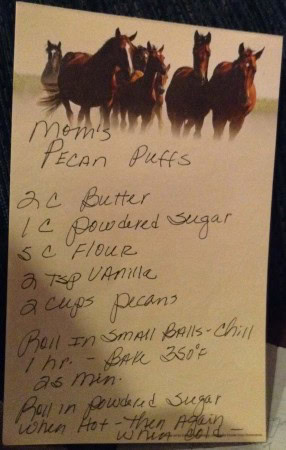 Mom's
Pecan Puffs
2 C Butter
1 C Powdered Sugar
5 C Flour
2 Tsp Vanilla
2 cups pecans
Roll In Small Balls - Chill
1 hr. - Bake 350°F
25 min.
Roll in powdered Sugar
when Hot - then Again
when Cold -